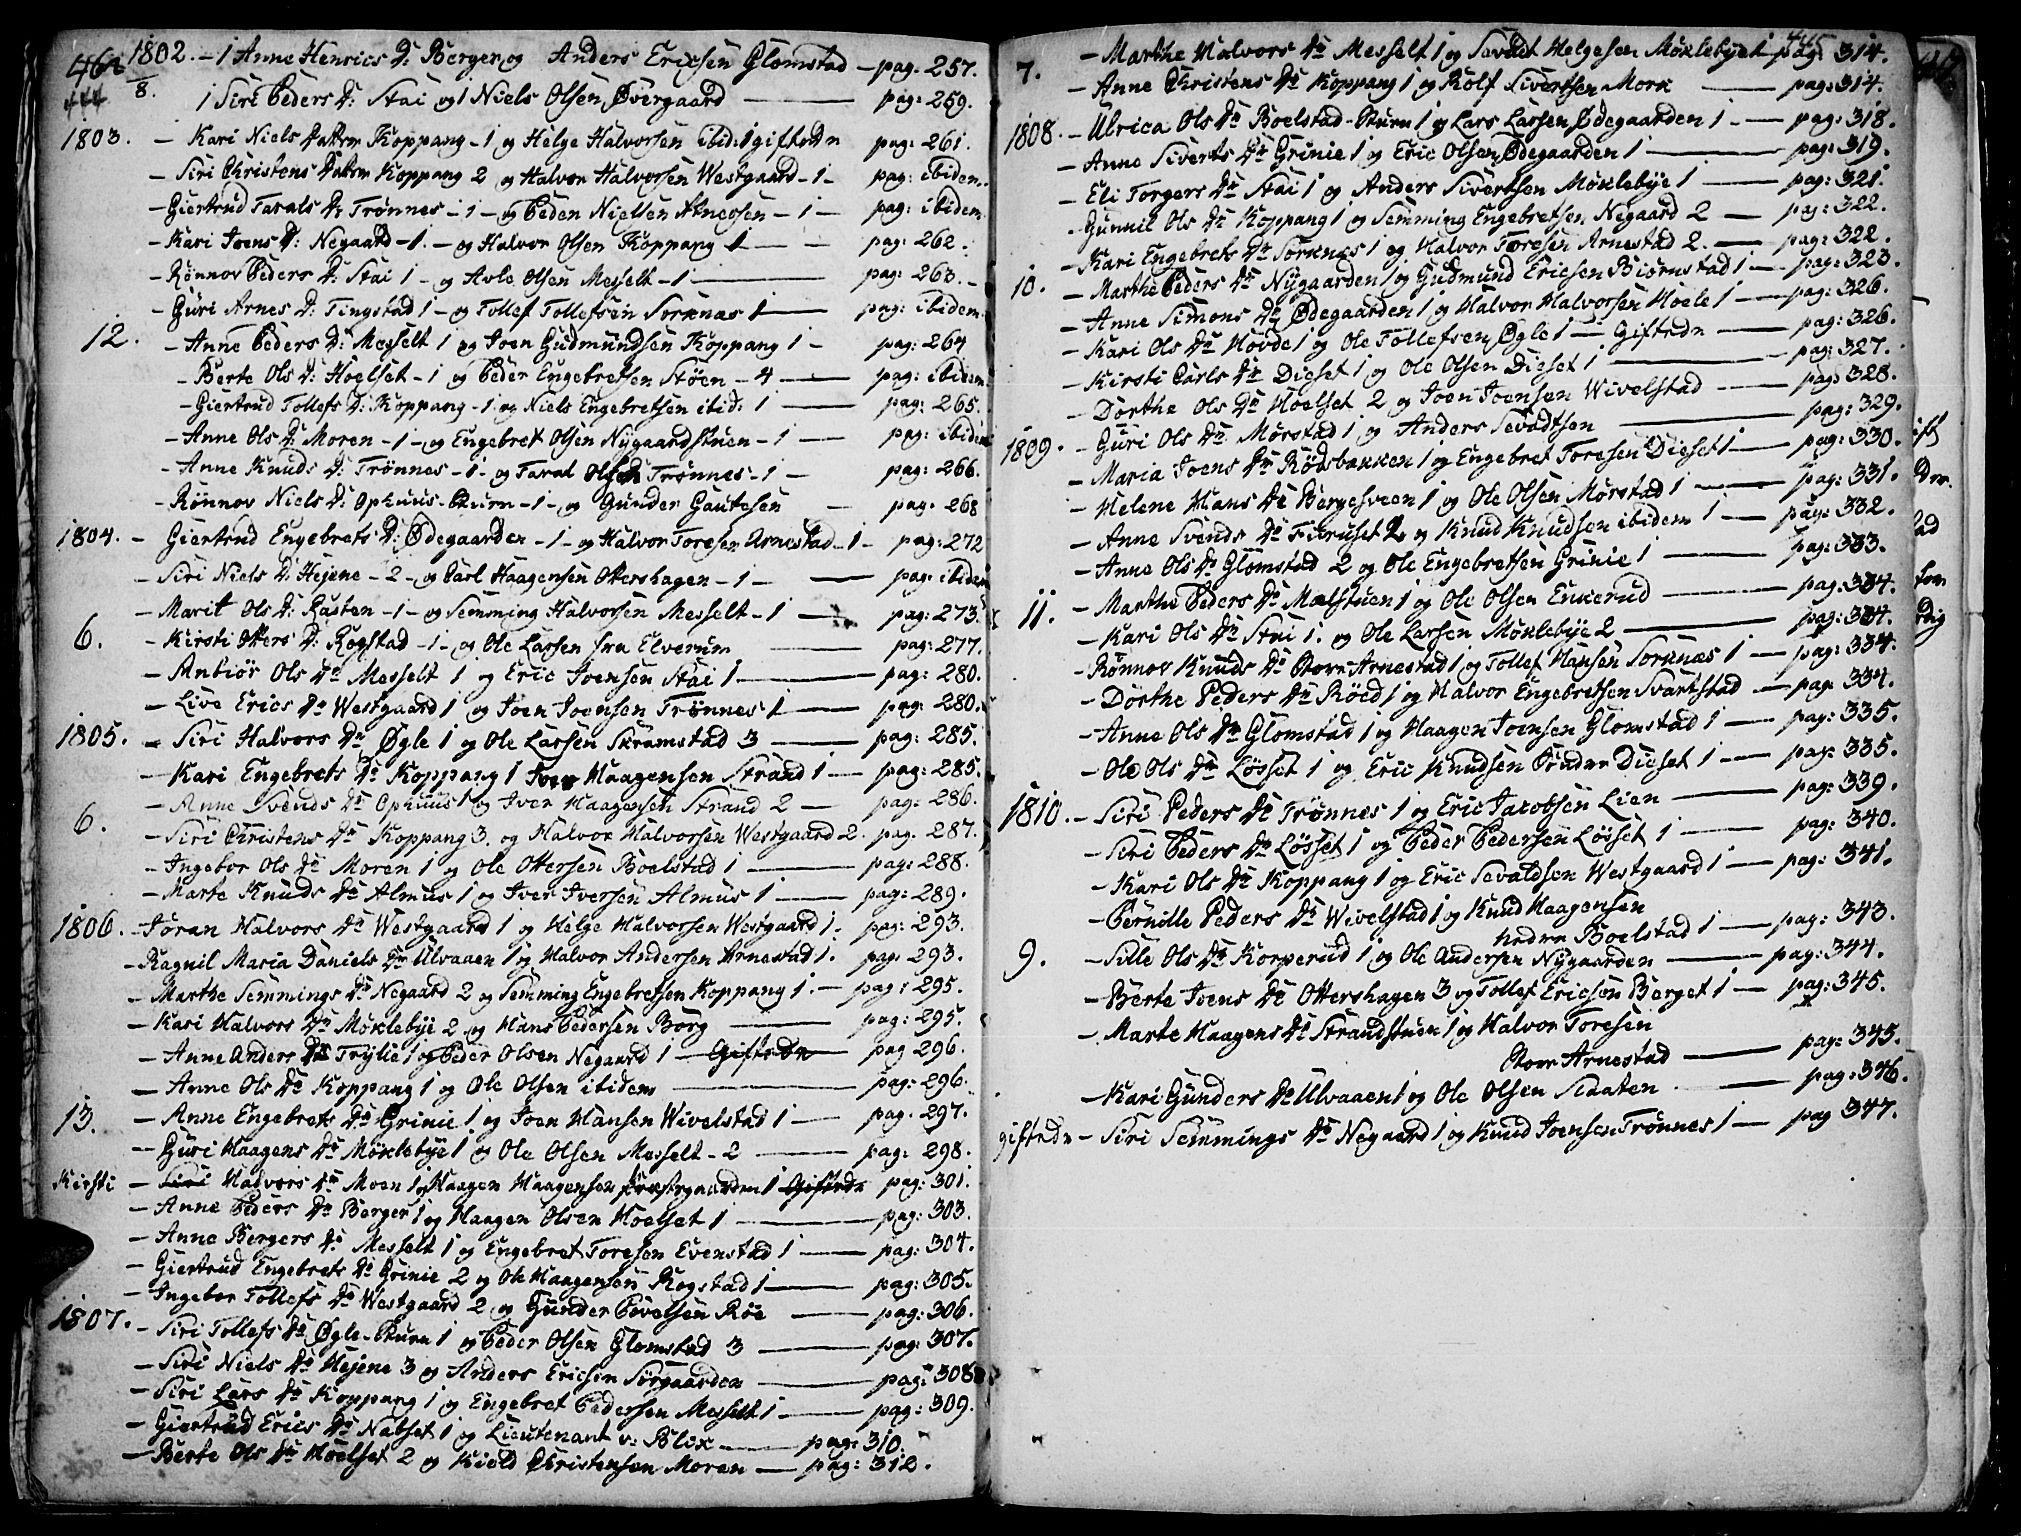 462 1802. - 1 Anne Henrics D: Berger og Anders Ericsen Glomstad - pag. 257.
444 8. 1 Siri Peders D: Stai og 1 Niels Olsen Øvergaard - pag: 259.
1803. - Kari Niels Datter Koppang - 1 og Helge Halvorsen ibid: 1 giftedn pag: 261.
- Siri Christens Datter Koppang 2 og Halvor Halvorsen Westgaard - 1 - pag: ibidem.
- Giertrud Tarals D: Trønnes - 1 - og Peder Nielsen Atneosen - 1 - pag: ibidem
- Kari Joens D: Negaard - 1. - og Halvor Olsen Koppang 1 - pag: 262.
- Rønnov Peders D: Stai 1 - og Avle Olsen Messelt - 1 - pag: 263.
- Guri Arnes D: Tingstad 1 - og Tollef Tollefsen Sorknæs 1 - pag: ibidem.
12. - Anne Peders D: Messelt 1 og Joen Gudmundsen Koppang 1 - pag: 264
- Berte Ols D: Hoelset - 1 og Peder Engebretsen Støen - 4 - pag: ibidem
- Giertrud Tollefs D: Koppang - 1 og Niels Engebretsen ibid: 1 - pag: 265.
- Anne Ols D: Moren - 1 - og Engebret Olsen Nygaardstuen - 1 - pag: ibidem
- Anne Knuds D: Trønnes - 1 - og Taral Olsen Trønnes - 1 - pag: 266.
- Rønnov Niels D: Ophuus - 1 - og Gunder Gautesen - pag: 268
1804. - Giertrud Engebrets D: Ødegaarden - 1 - og Halvor Toresen Arnestad - 1 - pag: 272
- Siri Niels D: Hejene - 2 - og Carl Haagensen Ottershagen - 1 - pag: ibidem
- Marit Ols D: Rasten - 1 - og Semming Halvorsen Messelt - 1 - pag: 273
6. - Kirsti Otters D: Rogstad - 1 - og Ole Larsen fra Elverum - pag: 277.
- Anbiør Ols Dr Messelt 1 og Eric Joensen Stai 1 - pag: 280.
- Live Erics Dr Westgaard 1 og Joen Joensen Trønnes 1 - pag: 280.
1805. - Siri Halvors Dr Øgle 1 og Ole Larsen Skramstad 3 - pag: 285.
- Kari Engebrets Dr Koppang 1 Iver Haagensen Strand 1 - pag: 285.
- Anne Svends Dr Ophuus 1 og Iver Haagensen Strand 2 - pag: 286.
6. - Siri Christens Dr Koppang 3. og Halvor Halvorsen Westgaard 2. pag. 287.
- Ingebor Ols Dr Moren 1 og Ole Ottersen Boelstad 1 - pag: 288.
- Marte Knuds Dr Almus 1 og Iver Iversen Almus 1 - pag: 289.
1806. - Jøran Halvors Dr Westgaard 1 og Helge Halvorsen Westgaard 1. pag: 293.
- Ragnil Maria Daniels Dr Ulvaaen 1 og Halvor Andersen Arnestad 1. pag: 293.
- Marthe Semmings Dr Negaard 2 og Semming Engebretsen Koppang 1. - pag: 295.
- Kari Halvors Dr Møklebÿe 2 og Hans Pedersen Borg - pag: 295.
- Anne Anders Dr Trÿlie 1 og Peder Olsen Negaard 1 - Giftedn pag 296.
- Anne Ols Dr Koppang 1 og Ole Olsen ibidem - pag: 296.
13. - Anne Engebrets Dr Grinie 1 og Joen Hansen Wivelstad 1 - pag: 297.
- Guri Haagens Dr Møklebÿe 1 og Ole Olsen Messelt - 2 - pag: 298.
Kirsti - Siri Halvors Dr Moen 1 og Haagen Haagensen Præstegaarden 1 Giftedn pag: 301.
- Anne Peders Dr Berger 1 og Haagen Olsen Hoelset 1 - pag: 303.
- Anne Bergers Dr Messelt 1 og Engebret Toresen Evenstad 1 - pag: 304.
- Giertrud Engebrets Dr Grinie 2 og Ole Haagensen Rogstad 1 - pag: 305.
- Ingebor Tollefs Dr Westgaard 2 og Gunder Povelsen Røe - pag: 306.
1807. - Siri Tollefs Dr Øgle- 1 og Peder Olsen Glomstad 3 - pag: 307.
- Siri Niels Dr Hejene 3 og Anders Ericsen Sörgaarden - pag: 308
- Siri Lars Dr Koppang 1 og Engebret Pedersen Messelt 1 - pag: 309.
- Giertrud Erics Dr Nabset 1 og Lieutenant v: Blix - pag: 310.
- Berte Ols Dr Hoelset 2 og Kield Christensen Moren - pag: 312.
445
7. - Marthe Halvors Dr Messelt 1 og Sevadt Helgesen Møklebÿe 1 pag: 314.
- Anne Christens Dr Koppang 1 og Rolf Sivertsen Mork - pag: 314.
1808. - Ulrica Ols Dr Boelstad- 1 og Lars Larsen Ødegaarden 1 - pag: 318.
- Anne Siverts Dr Grinie 1 og Eric Olsen Ødegaarden 1 - pag: 319.
- Eli Torgers Dr Stai 1 og Anders Sivertsen Møklebÿe 1 - pag: 321.
- Gunnil Ols Dr Koppang 1 og Semming Engebretsen Negaard 2 - pag: 322.
- Kari Engebrets Dr Sorknæs 1 og Halvor Toresen Arnestad 2. - pag: 322.
10. - Marthe Peders Dr Nÿgaarden 1 og Gudmund Ericsen Biørnstad 1 - pag: 323.
- Anne Simons Dr Ødegaarden 1 og Halvor Halvorsen Hoele 1 - pag: 326.
- Kari Ols Dr Hovde 1 og Ole Tollefsen Øgle 1 - Giftedn - pag: 326.
- Kirsti Carls Dr Dieset 1 og Ole Olsen Dieset 1 - pag: 327.
- Dorthe Ols Dr Hoelset 2 og Joen Joensen Wivelstad - pag: 328.
1809. - Guri Ols Dr Mørstad 1 og Anders Sevadtsen - pag: 329.
- Maria Joens Dr Rødsbakken 1 og Engebret Toresen Dieset 1 - pag: 330.
- Helene Hans Dr Bergesveen 1 og Ole Olsen Mørstad 1 - pag: 331.
- Anne Svends Dr Furuset 2 og Knud Knudsen ibidem 1 - pag: 332.
- Anne Ols Dr Glomstad 2 og Ole Engebretsen Grinie 1 - pag: 333.
11. - Marthe Peders Dr Mælstuen 1 og Ole Olsen Enkerud - pag: 334.
- Kari Ols Dr Stai 1. og Ole Larsen Møklebÿe 2 - pag: 334.
- Rønnov Knuds Dr Store Arnestad 1 og Tollef Hansen Sorknæs 1 - pag: 334.
- Dorthe Peders Dr Røed 1 og Halvor Engebretsen Svartstad - pag: 334.
- Anne Ols Dr Glomstad 1 og Haagen Joensen Glomstad 1 - pag: 335.
- Ole Ols Dr Løsset 1 og Eric Knudsen Søndre Dieset 1 - pag: 335.
1810. - Siri Peders Dr Trønnes 1 og Eric Jacobsen Lien - pag: 339.
- Siri Peders Dr Løsset 1 og Peder Pedersen Løsset 1 - pag: 340.
- Kari Ols Dr Koppang 1 og Eric Sevaldsen Westgaard 1 - pag: 341.
- Pernille Peders Dr Wivelstad 1 og Knud Haagensen
Nedre Boelstad 1 - pag: 343.
9. - Sille Ols Dr Korperud 1 og Ole Andersen Nÿgaarden - pag: 344.
- Berte Joens Dr Ottershagen 3 og Tollef Ericsen Berget 1 - pag: 345.
- Marte Haagens Dr Strandstuen 1 og Halvor Toresen
Store Arnestad - pag: 345.
- Kari Gunders Dr Ulvaaen 1 og Ole Olsen Sdaten - pag: 346.
giftedn - Siri Semmings Dr Negaard 1 og Knud Joensen Trønnes 1 - pag 347.